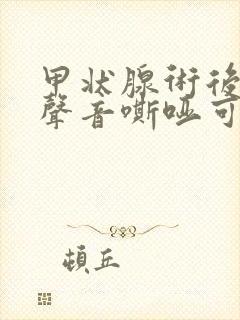 甲状腺術後
聲音嘶啞可
頓丘